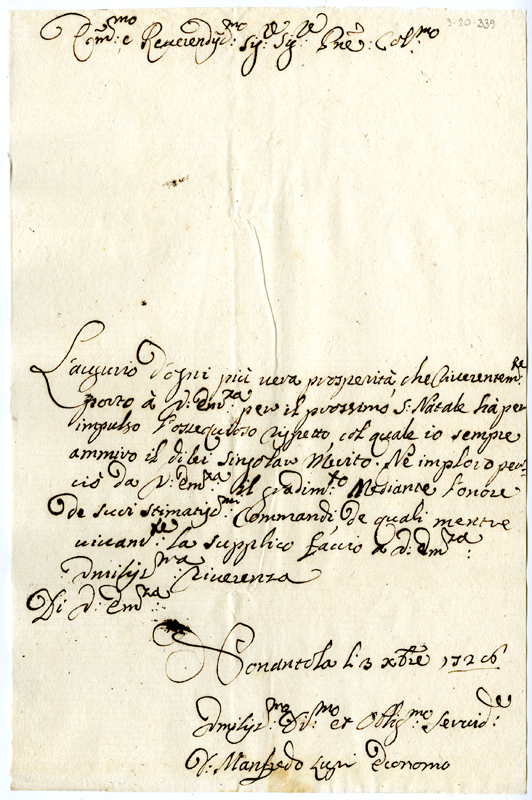 3-20-339
Em:mo e Reverendis:mo Sig:re Sig:re Pne: Col:mo
L'augurio d'ogni più vera prosperità, che riverentem:te
porto à V: Em:za per il prossimo S: Natale hà per
impulso l'ossequioso rispetto, col quale io sempre
ammiro il di lei singolar Merito. Ne imploro per-
ciò da V: Em:za il gradim:to Mediante l'onore
de suoi stimatis:mi Commandi, de quali mentre
vivam:te la supplico faccio a V: Em:za
Umilis:ma Riverenza
Di V: Em:za
Nonantola li 3 xbre 1726
Umilis:mo Di:mo et Oblig:mo Servid:re
D: Manfredo Economo